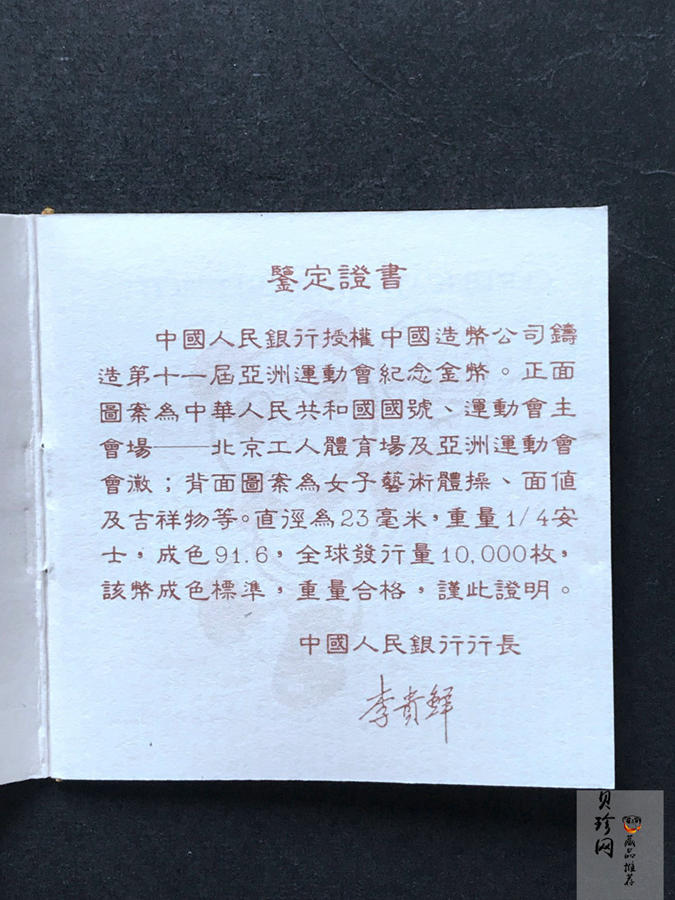 鑒定證書
中國人民銀行授權中國造幣公司鑄
造第十一屆亞洲運動會紀念金幣。正面
圖案為中華人民共和國國號、運動會主
會場——北京工人體育場及亞洲運動會
會徽；背面圖案為女子藝術體操、面值
及吉祥物等。直徑為23毫米，重量1/4安
士，成色91.6，全球發行量10,000枚，
該幣成色標準，重量合格，謹此證明。
中國人民銀行行長
李貴鮮
贝珍网
藏品推荐